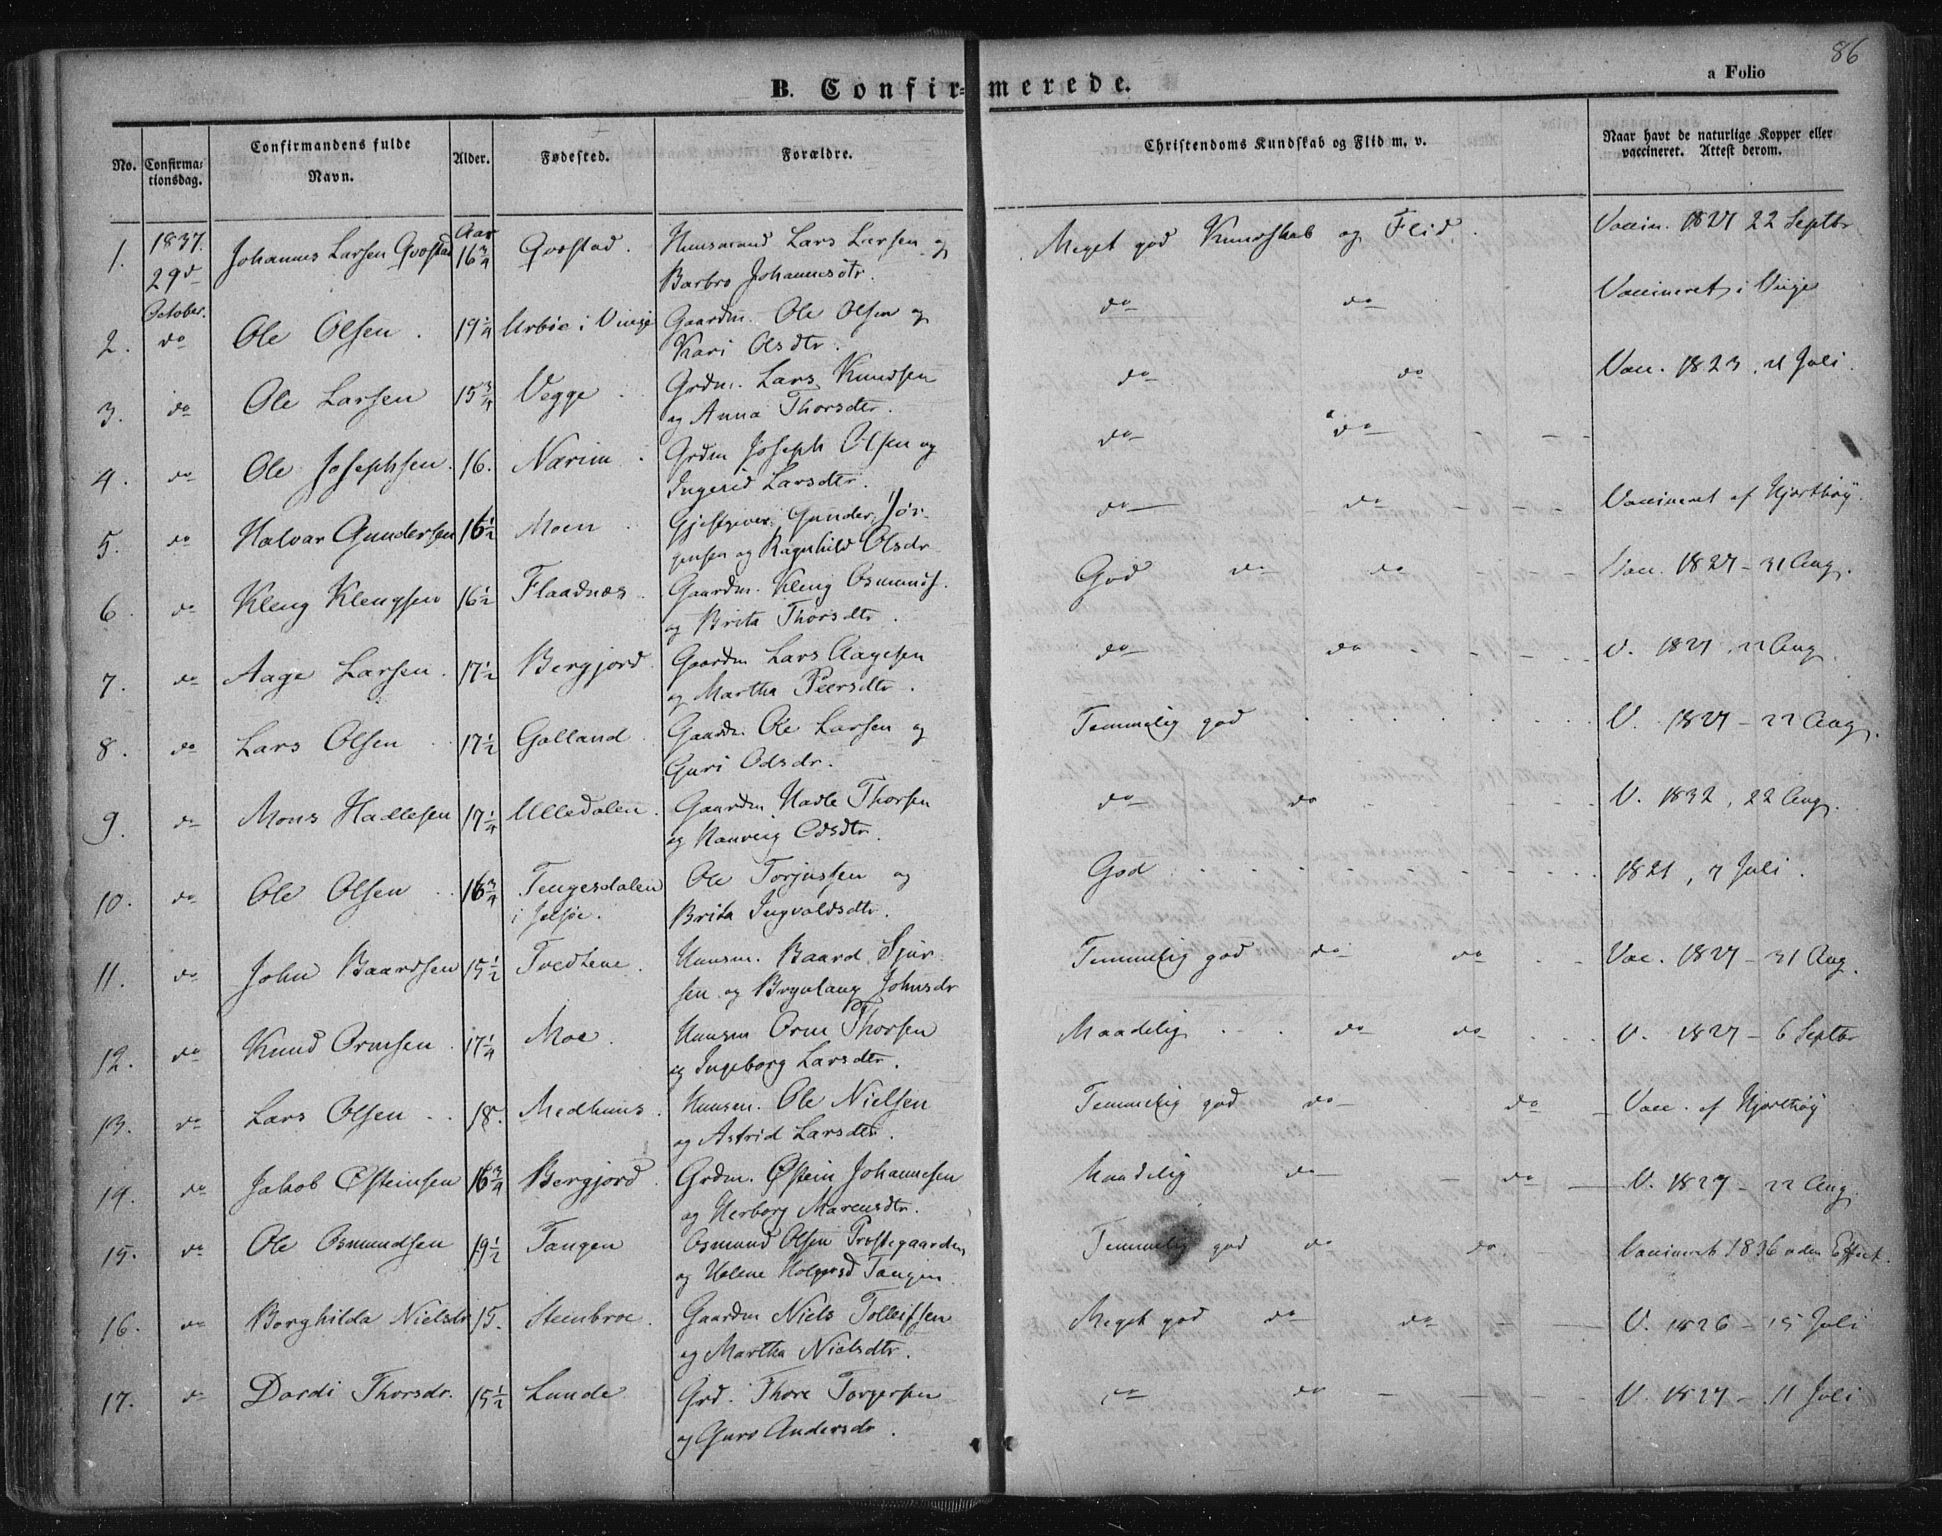 86
B. Confirmerede.
a Folio
No.
Confirmationsdag.
Confirmandens fulde Navn.
Alder.
Fødested.
Forældre.
Christendoms Kundskab og Flid m. v.
Naar havt de naturlige Kopper eller vaccineret. Attest derom.
1. 1837. 29d October. Johannes Larsen Qvostad Aar 16 3/4 Qvostad. Huusmand Lars Larsen og Meget god Kundskab og Flid. Vaccin. 1827 22 Septbr
Barbro Johannesdtr.
2. do Ole Olsen. 19 1/4 Urbøe i Vinje Gaardm. Ole Olsen og do do Vaccineret i Vinje
Kari Olsdtr.
3. do Ole Larsen 15 3/4 Vegge. Grdm. Lars Knudsen do do Vacc. 1823, 21 Juli.
og Anna Thorsdtr.
4. do Ole Josephsen. 16. Nærim. Grdm Joseph Olsen og do do
Ingerid Larsdtr.
5. do Halvar Gundersen 16 1/2 Moen. Gjestgiver Gunder Jør- do do Vaccineret af Hjorthøy.
gensen og Ragnhild Olsdr
6. do Kleng Klengsen 16 1/2 Flaadnæs. Gaardm. Kleng Osmunds. God do do Vacc. 1827 - 31 Aug.
og Brita Thorsdtr.
7. do Aage Larsen. 17 1/2 Bergjord. Gaardm Lars Aagesen do do V. 1827, 22 Aug.
og Martha Peersdtr.
8. do Lars Olsen 17 1/2 Galland Gaardm. Ole Larsen og Temmelig god V. 1827 - 22 Aug.
Guri Odsdr.
9. do Mons Hadlesen 17 1/4 Ulledalen. Gaardm Hadle Thorsen do do V. 1832, 22 Aug.
og Ranveig Odsdtr.
10. do Ole Olsen 16 3/4 Tengesdalen Ole Torjussen og God 1821, 7 Juli.
i Jelsøe. Brita Ingvaldsdtr.
11. do John Baardsen 15 1/2 Tvedtene. Huusm. Baard Sjur- Temmelig god do do Vac. 1827 - 31 Aug.
sen og Brynlaug Johnsdr
12. do Knud Ormsen. 17 1/4 Moe. Huusm Orm Thorsen Maadelig do do V. 1827 - 6 Septbr
og Ingeborg Larsdtr.
13. do Lars Olsen 18. Medhuus. Huusm. Ole Nielsen Temmelig god do do Vacc. af Hjorthøy
og Astrid Larsdtr.
14. do Jakob Østeinsen 16 3/4 Bergjord. Grdm. Østein Johannesen Maadelig do do V. 1827 - 22 Aug.
og Herborg
15. do Ole Osmundsen 19 1/2 Tangen Osmund Olsen Prostegaarden Temmelig god do do Vaccineret 1836 uden Effect.
og Helene Tangen.
16. do Borghilda Nielsdr 15. Steinbroe. Gaardm Niels Tolleifsen Meget god do do V. 1826 - 15 Juli
og Martha Nielsdtr.
17. do Dordi Thorsdr. 15 1/2 Lunde Grd. Thore Torgersen do do V. 1827 - 11 Juli
og Guro Andersdr.